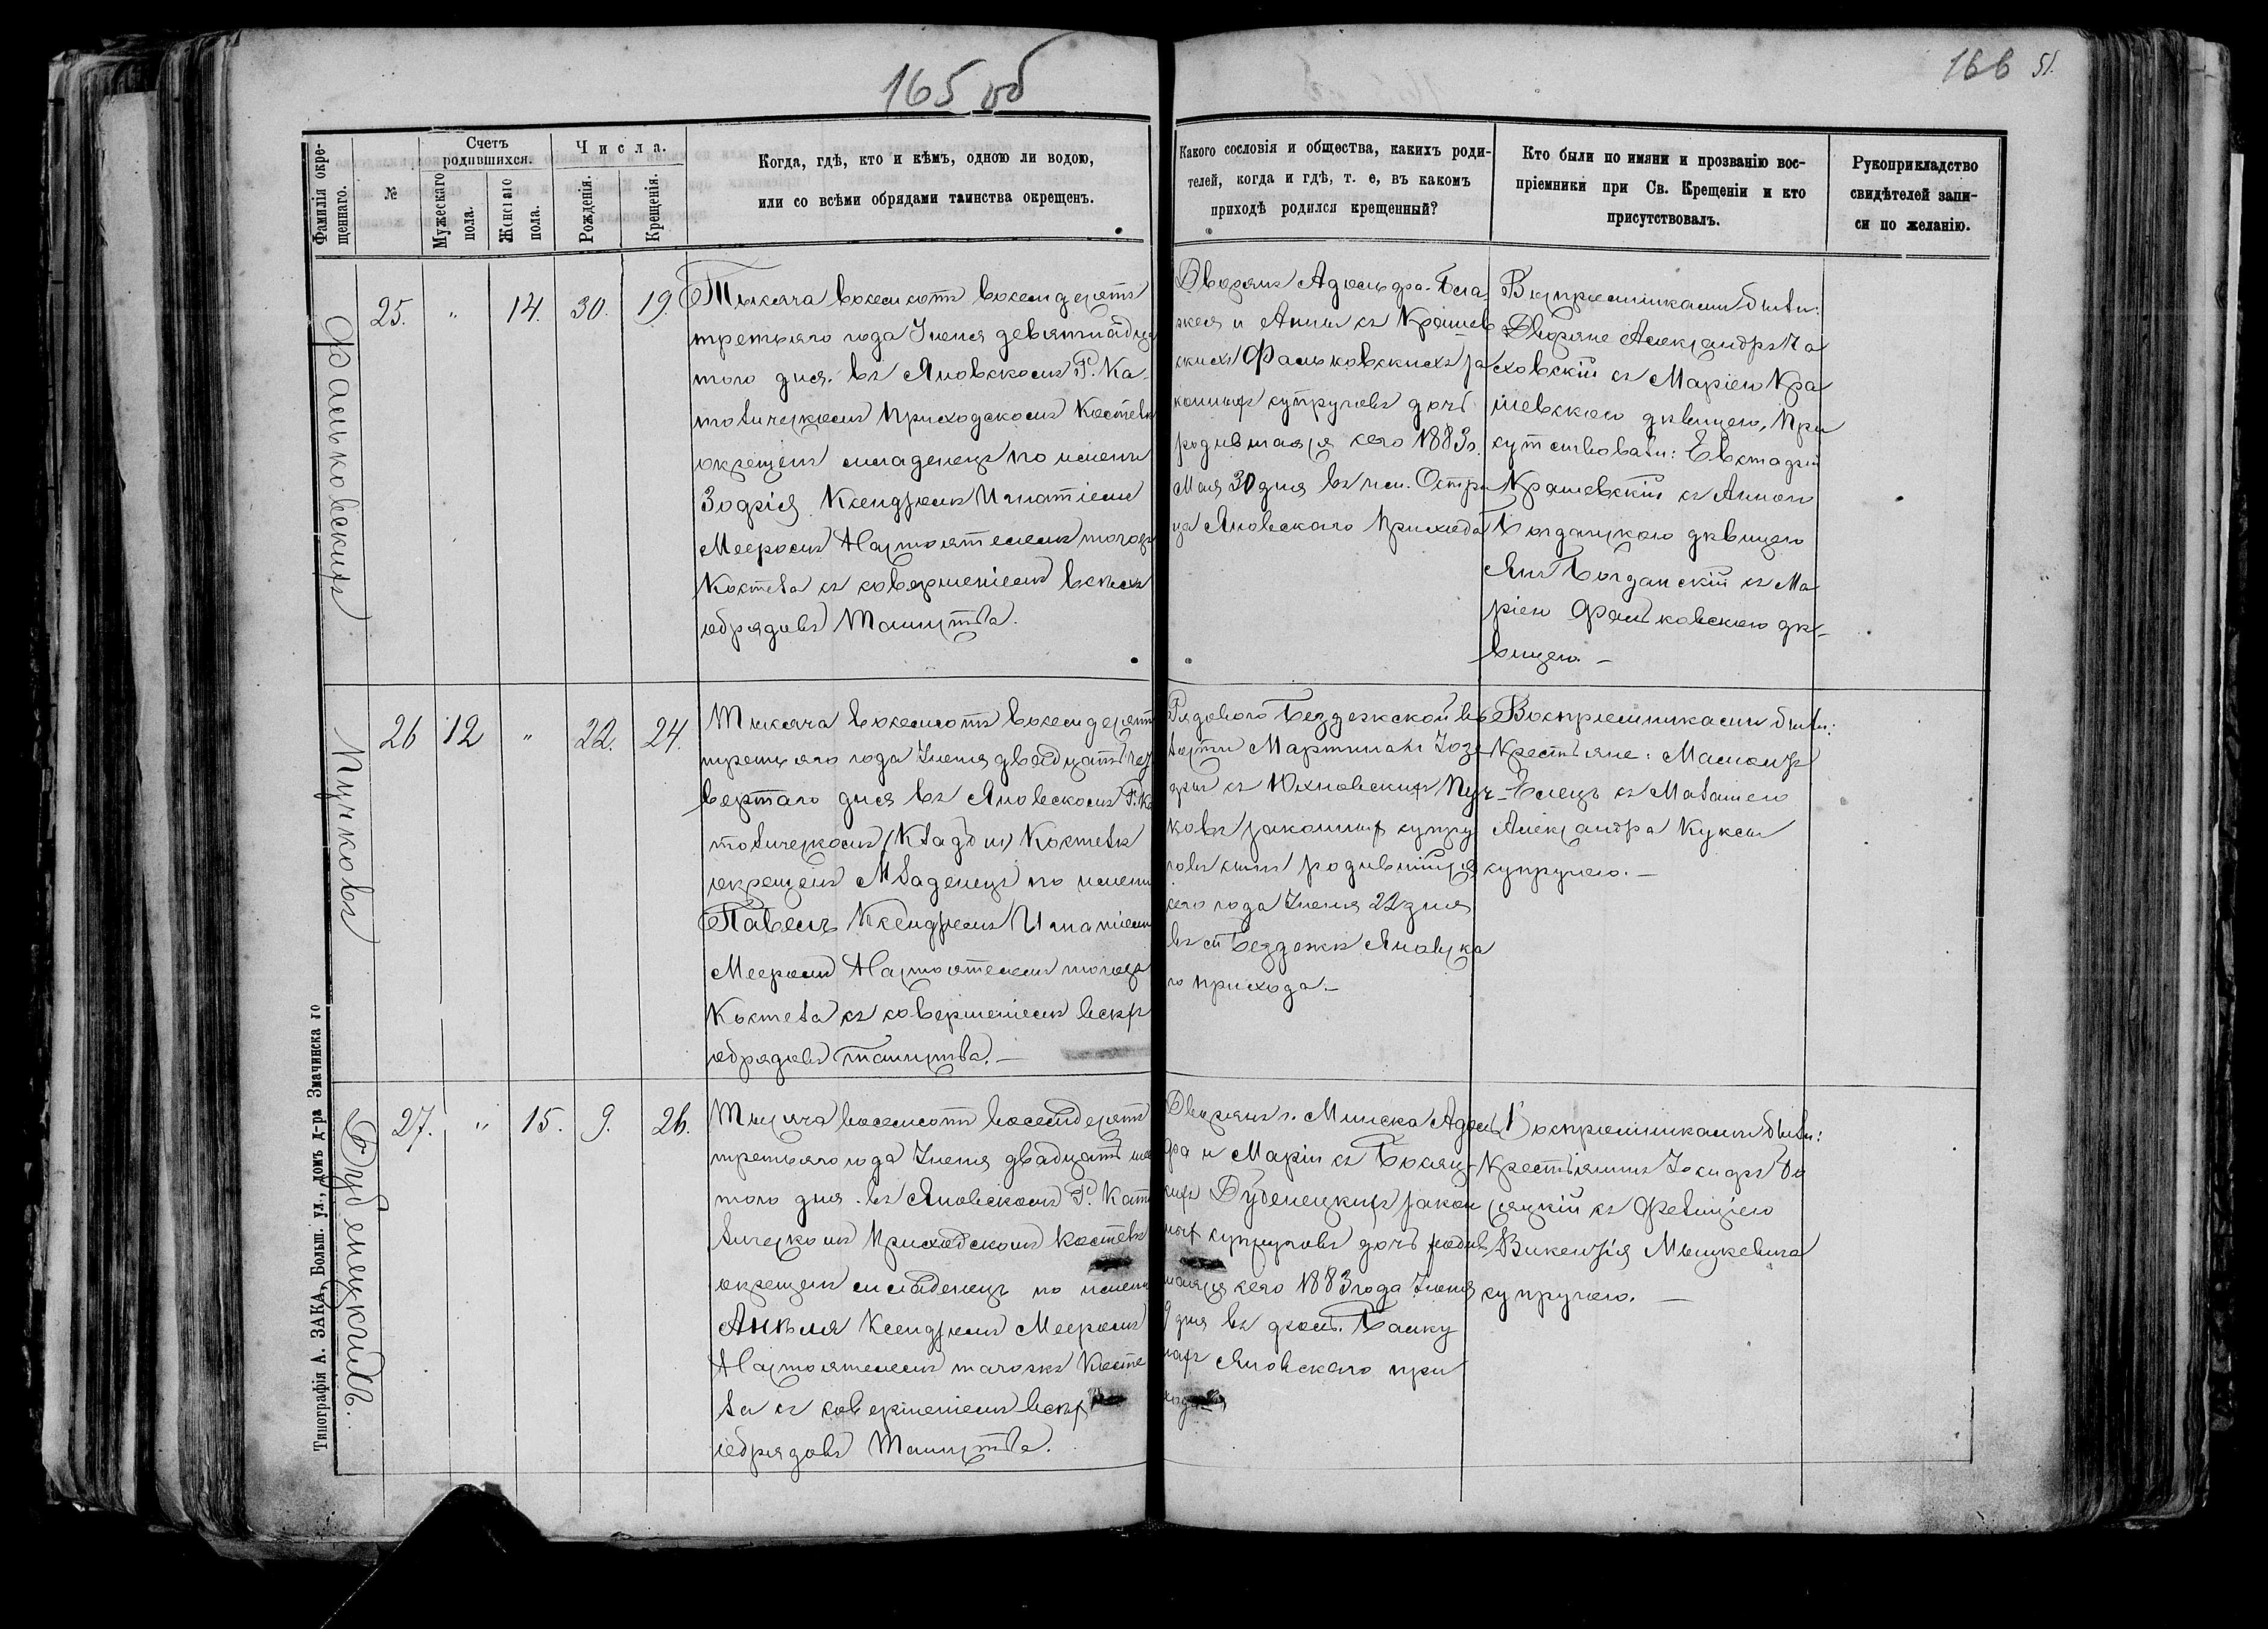 165 об
166 51.
Фамилія окре-
щеннаго.
№
Счетъ
родившихся.
Мужескаго
пола.
Женскаго
пола.
Числа.
Рожденія.
Крещенія.
Когда, гдѣ, кто и кѣмъ, одною ли водою,
или со всѣми обрядами таинства окрещенъ.
Какого сословія и общества, какихъ роди-
телей, когда и гдѣ, т. е, въ какомъ
приходѣ родился крещенный?
Кто были по имяни и прозванію вос-
пріемники при Св. Крещеніи и кто
присутствовалъ.
Рукоприкладство
свидѣтелей запи-
си по желанію.
Фальковскихъ
25. " 14. 30. 19.
Тысяча восемсотъ восемдесятъ
третьяго года Іюня девятнадца
того дня. въ Яновскомъ Р. Ка-
толическомъ Приходскомъ Костелѣ
окрещенъ младенецъ по имени
Зофія Ксендзомъ Игнатіемъ
Мееромъ Настоятелемъ тогожъ
Костела съ совершеніемъ всѣхъ
обрядовъ Таинства.
Дворянъ Адольфа-Бла
жея и Анны съ Крашев
скихъ Фальковскихъ за
конныхъ супруговъ дочь
родившаяся сего 1883 г.
Мая 30 дня въ им. Остро
ва Яновскаго Прихода
Воспріемниками были:
Дворяне Александръ Ча
ховскій съ Маріею Кра
шевскою дѣвицею, При
сутствовали: Евстафій
Крашевскій съ Анною
Богданскою дѣвицею
Янъ Богданскій съ Ма
ріею Фальковскою дѣ-
вицею. –
Пучковъ
26 12 " 22. 24.
Тысяча восемсотъ восемдесятъ
третьяго года Іюня двадцать чет
вертаго дня въ Яновскомъ Р. Ка
толическомъ (Кладби) Костелѣ
окрещенъ Младенецъ по имени
Павелъ Ксендзомъ Игнатіемъ
Мееромъ Настоятелемъ тогожъ
Костела съ совершеніемъ всѣхъ
обрядовъ таинства. –
Рядового Бездежской во
лости Мартина и Юзе
фы съ Юхновскихъ Пуч-
ковъ законныхъ супру
говъ сынъ родившійся
сего года Іюня 22 дня
въ м Бездежѣ Яновска
го прихода. –
Воспріемниками были:
Крестьяне:
Елецъ съ
Александра
супругою. –
Дубенецкихъ.
27. " 15. 9. 26.
Тысяча восемсотъ восемдесятъ
третьяго года Іюня двадцать шес
того дня. въ Яновскомъ Р. Като
лическомъ Приходскомъ Костелѣ
окрещенъ младенецъ по имени
Анѣля Ксендзомъ Мееромъ
Настоятелемъ тогожъ Косте
ла съ совершеніемъ всѣхъ
обрядовъ Таинства.
Дворянъ г. Минска Адоль
фа и Маріи съ Бояц-
кихъ Дубенецкихъ закон
ныхъ супруговъ дочь родив
шаяся сего 1883 года Іюня
9 дня въ
Яновскаго при
хода
Воспріемниками были:
Крестьянинъ Іосифъ Бо
яцкій съ Фелиціею
Викентія Мицкевича
супругою. –
Типографія А. ЗАКА, Больш. ул., домъ д-ра Змачинска го